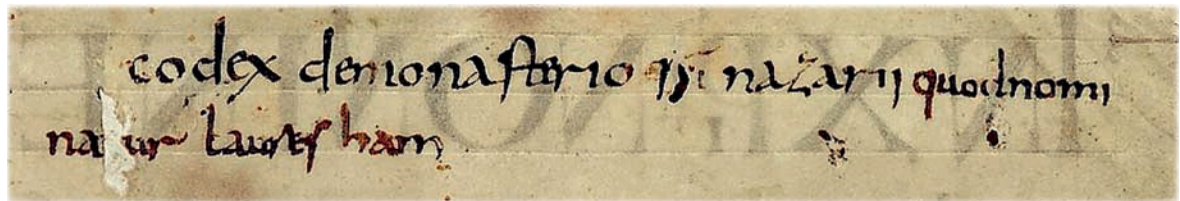 codex demonasterio sci nazarii quodnomi
natur lauresham